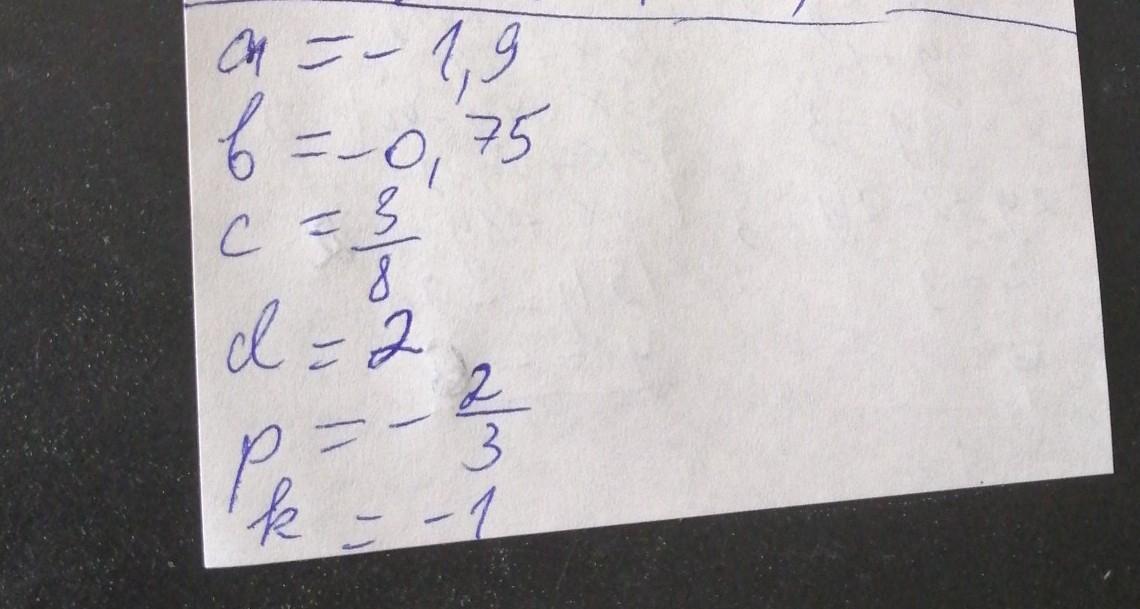 a = - 1,9
b = - 0,75
c = 3/8
d = 2
p = - 2/3
k = - 1